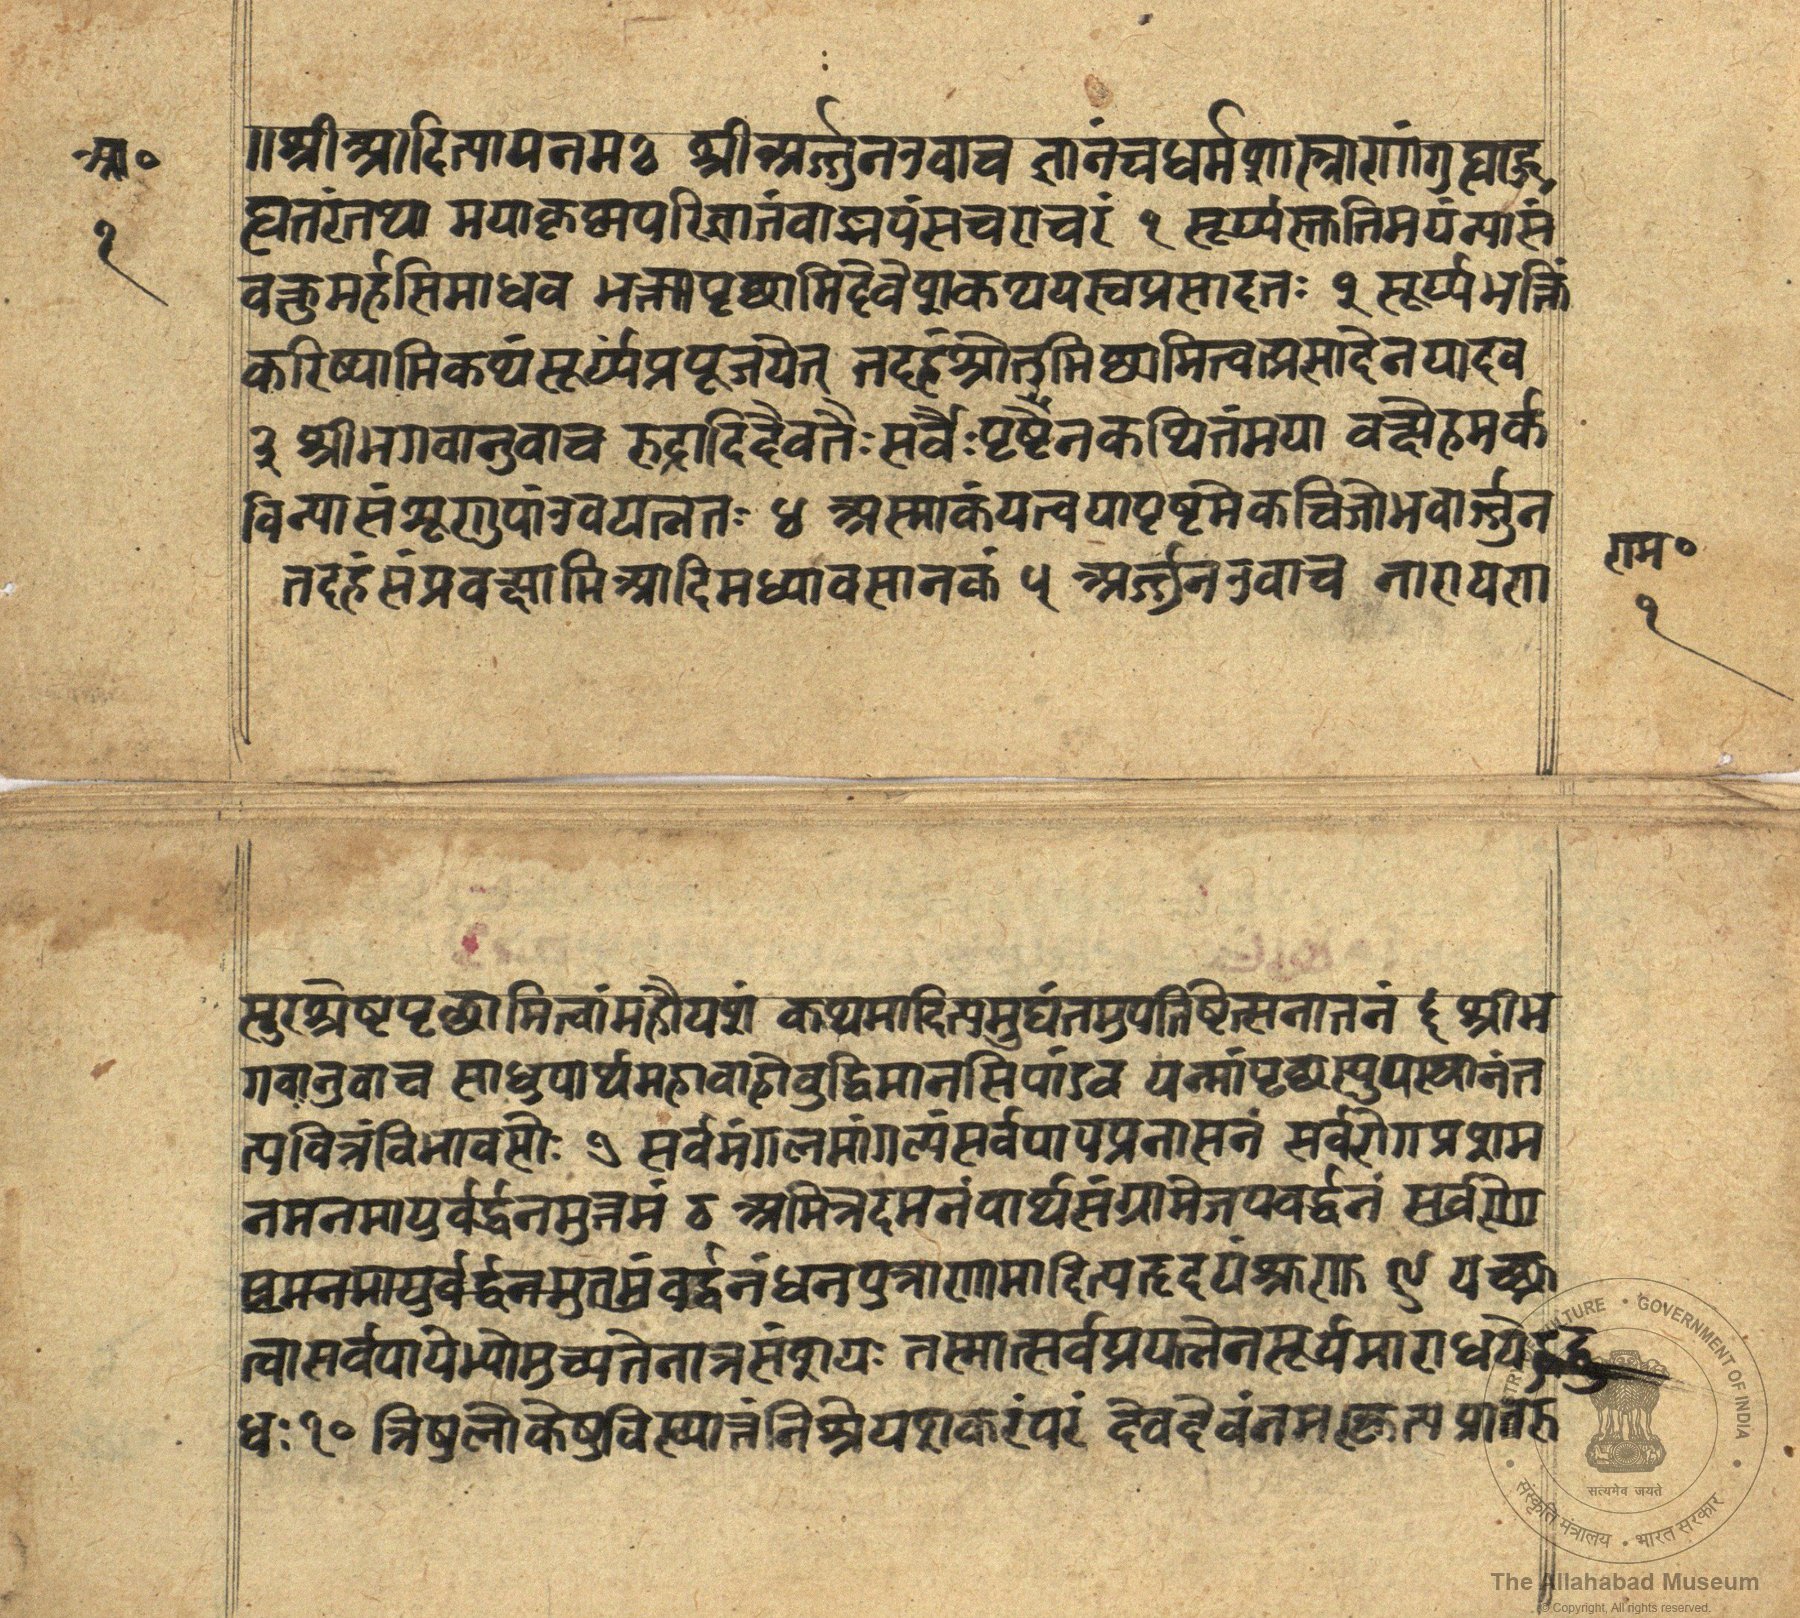 आ०
१
॥श्रीआदित्यायनमः श्रीअर्ज्जुनउवाच ज्ञानंचधर्मशास्त्राणांगुह्याद्गु
ह्यतरंतथा मयाकृष्मपरिज्ञातंवाङ्मयंसचराचरं १ सूर्य्यस्तुतिमयंन्यासं
वक्तुमर्हसिमाधव भक्त्यापृछामिदेवेशकथयस्वप्रसादतः २ सूर्य्यभक्तिं
करिष्यामिकथंसूर्य्यंप्रपूजयेत् तदहंश्रोतुमिछामित्वत्प्रसादेनयादव
३ श्रीभगवानुवाच रुद्रादिदेवतैःसर्वैःपृष्टेनकथितंमया वक्ष्येहमर्क
विन्यासंशृणुपांडवयत्नतः ४ अस्माकंयत्वयापृष्टमेकचित्तोभवार्ज्जुन
तदहंसंप्रवक्ष्यामिआदिमध्यावसानकं ५ अर्ज्जुनउवाच नारायण
राम०
१
सुरश्रेष्टपृछामित्वांमहायशं कथमादित्यमुद्यंतमुपतिष्टेत्सनातनं ६ श्रीभ
गवानुवाच साधुपार्थमहावाहोवुद्धिमानसिपांडव यन्मांपृछस्युपस्थानंत
त्पवित्रंविभावसोः ७ सर्वमंगलमांगल्यंसर्वपापप्रनासनं सर्वरोगप्रशम
नमनमायुर्वर्द्धनमुत्तमं ८ अमित्रदमनंपार्थसंग्रामेजयवर्द्धनं सर्वरोग
प्रमनमायुर्वर्द्धनमुतमंवर्द्धनंधनपुत्राणामादित्यहृदयंशृणु ९ यच्छ्रु
त्वासर्वपापेभ्योमुच्यतेनात्रसंशयः तस्मात्सर्वप्रयत्नेनसूर्यमाराधयेद्बु
धः १० त्रिषुलोकेषुविख्यातंनिश्रेयशकरंपरं देवदेवंनमस्कृत्यप्रातरु
MINISTRY OF CULTURE • GOVERNMENT OF INDIA
सत्यमेव जयते
संस्कृति मंत्रालय • भारत सरकार
The Allahabad Museum
© Copyright, All rights reserved.